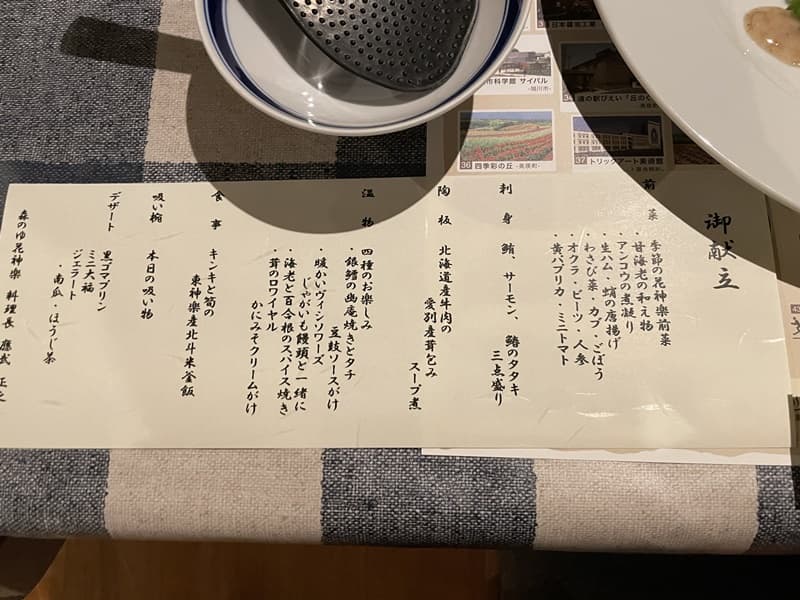 御献立
前菜
季節の花神楽前菜
・甘海老の和え物
アンコウの煮凝り
・生ハム・蛸の唐揚げ
・わさび菜・カブ・ごぼう
オクラ・ビーツ・人参
・黄パプリカ・ミニトマト
刺身
鮪、サーモン、鰆のタタキ
三点盛り
陶板
北海道産牛肉の
愛別産茸包み
スープ煮
温物
四種のお楽しみ
・銀鱈の幽庵焼きとタチ
豆鼓ソースがけ
・暖かいヴィシソワーズ
じゃがいも饅頭と一緒に
・海老と百合根のスパイス焼き
・茸のロワイヤル
かにみそクリームがけ
食事
キンキと筍の
東神楽産北斗米釜飯
吸い椀
本日の吸い物
デザート
黒ゴマプリン
ミニ大福
ジェラート
・南瓜・ほうじ茶
森のゆ花神楽 料理長 應武 正之
日本醤油工業
市科学館 サイパル
-旭川市-
道の駅びえい「丘の
36 四季彩の丘 -美瑛町-
37 トリックアート美術館